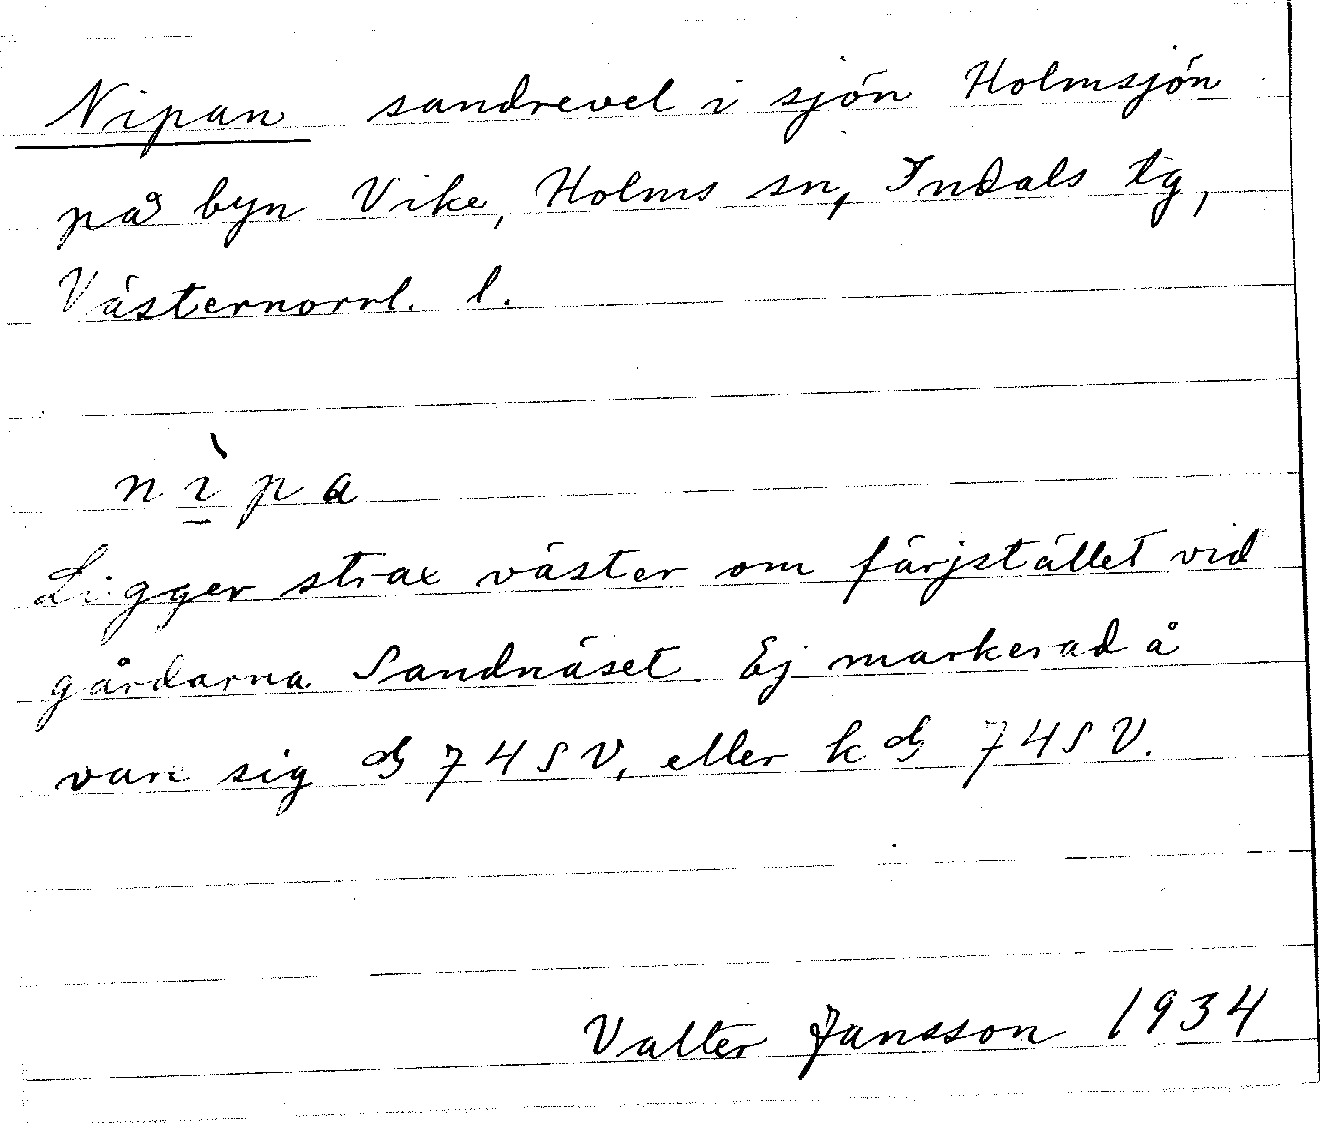 Nipan sandrevel i sjön Holmsjön
på byn Vike, Holms sn, Indals tg,
Västernorrl. l.
nı̱̀pa
Ligger strax väster om färjstället vid
gårdarna Sandnäset. Ej markerad å
vare sig 74SV, eller k 74SV.
Valter Jansson 1934